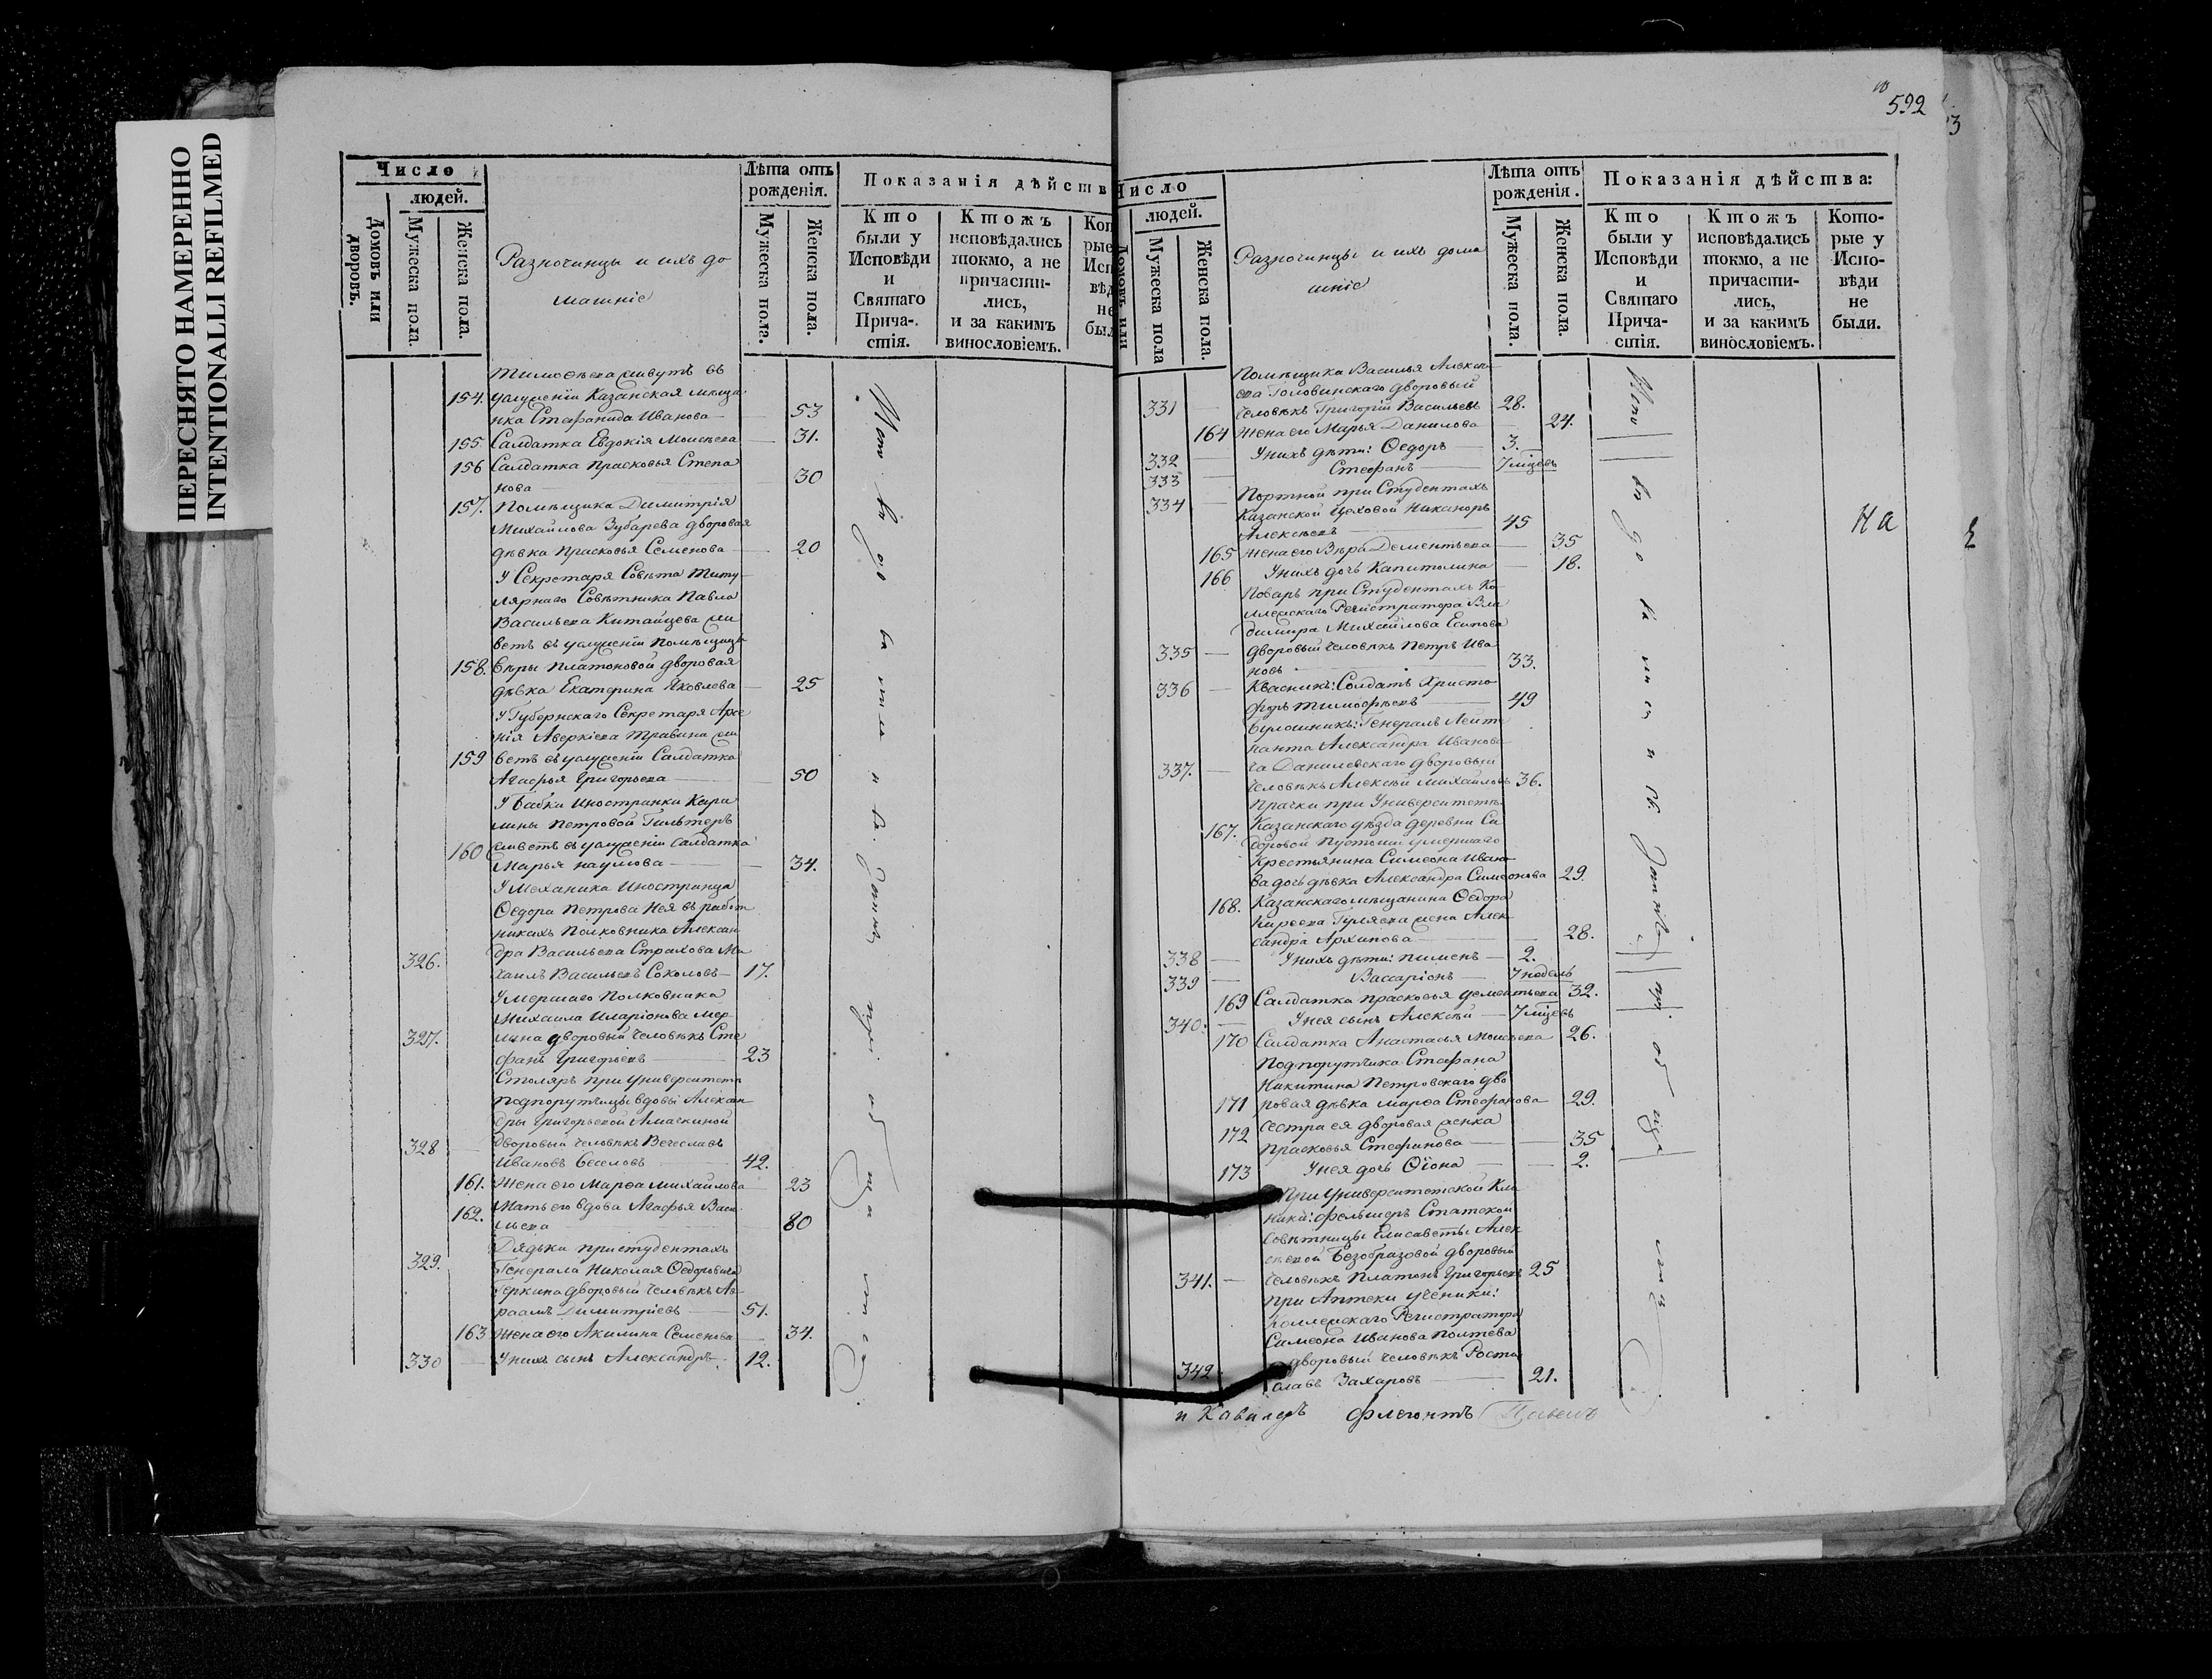 ПЕРЕСНЯТО НАМЕРЕННО
INTENTIONALLI REFILMED
Число
людей.
Домовъ или дворовъ.
Мужеска пола.
Женска пола.
Разночинцы и ихъ до
машніе
Лѣта отъ рожденія.
Мужеска пола.
Женска пола.
Показанія дѣйств
Кто были у Исповѣди и Святаго Прича-стія.
Ктожъ исповѣдались токмо, а не причасти-лись, и за какимъ винословіемъ.
Тимофѣева живутъ въ
154. услуженіи Казанская мѣща
нка Стефанида Иванова 53
155 Салдатка Евдокія Моисѣева 31.
156 Салдатка Прасковья Степа
нова 30
157. Помѣщика Димитрія
Михайлова Зубарева дворовая
дѣвка Прасковья Семенова 20
У Секретаря Совѣта Титу
лярнаго Совѣтника Павла
Васильева Китайцева жи
ветъ въ услуженіи помѣщицы
158. Вѣры Платоновой дворовая
дѣвка Екатерина Яковлева 25
У Губернскаго Секретаря Арсе
нія Аверкіева Травина жи
159 ветъ въ услуженіи Салдатка
Агафья Григорьева 50
У бабки Иностранки Каро
лины Петровой Гильтеръ
160 живетъ въ услуженіи салдатка
Марья Наумова 34.
У Механика Иностранца
Ѳедора Петрова Нея въ работ
никахъ Полковника Алексан
326. дра Васильева Страхова Ми
хаилъ Васильевъ Соколовъ 17.
Умершаго Полковника
Михаила Иларіонова Мер
327. лина дворовый человѣкъ Сте
фанъ Григорьевъ 23
Столяръ при Университетѣ
подпорутчицы вдовы Алексан
дры Григорьевой Амаскиной
328 дворовый человѣкъ Вечеславъ
Ивановъ Веселовъ 42.
161. Жена его Марѳа Михайлова 23
162. Мать его вдова Агафья Васи
льева 80
Дядьки при студентахъ
329. Генерала Николая Ѳедоровича
Геркина дворовый человѣкъ Ав
раамъ Димитріевъ 51.
163 Жена его Акилина Семенова 34.
330 У нихъ сынъ Александръ 12.
592
Число
людей.
Мужеска пола
Женска пола.
Разночинцы и ихъ дома
шніе
Лѣта отъ рожденія.
Мужеска пола.
Женска пола.
Показанія дѣйства:
Кто были у Исповѣди и Святаго Прича-стія.
Ктожъ исповѣдались токмо, а не причасти-лись, и за какимъ винословіемъ.
Кото-рые у Испо-вѣди не были.
Помѣщика Василья Алексѣ
ева Головинскаго дворовый
331 человѣкъ Григорій Васильевъ 28.
164 Жена его Марья Данилова 24.
332 У нихъ дѣти: Ѳедоръ 3.
333 Стефанъ 7 мцевъ
334 Портной при Студентахъ
Казанской Цеховой Никаноръ
Алексѣевъ 45
165 Жена его Вѣра Дементьева 35
166 У нихъ дочь Капитолина 18.
Поваръ при Студентахъ Ко
ллежскаго Регистратора Вла
димира Михайлова Есипова
335 дворовый человѣкъ Петръ Ива
новъ 33.
336 Квасникъ: Солдатъ Христо
форъ Тимофѣевъ 49
Булошникъ: Генералъ Лейте
нанта Александра Иванови
337. ча Данилевскаго дворовый
человѣкъ Алексѣй Михайловъ 36.
Прачки при Университетѣ
167. Казанскаго уѣзда деревни Си
доровой Пустоши умершаго
Крестьянина Симеона Ивано
ва дочь дѣвка Александра Симеонова 29.
168. Казанскаго мѣщанина Ѳедора
Киреева Гуляева жена Алек
сандра Архипова 28.
338 У нихъ дѣти: Пименъ 2.
339 Вассаріонъ 7 недѣль
169 Салдатка Прасковья Дементьева 32.
340. У нея сынъ Алексѣй 7 мцевъ
170 Салдатка Анастасья Моисѣева 26.
Подпорутчика Стефана
Никитина Петровскаго дво
171 ровая дѣвка Марѳа Стефанова 29.
172 Сестра ея дворовая женка
Прасковья Стефанова 35
173 У нея дочь Ѳіона 2.
При Университетской Кли
ники: фельшеръ Статской
Совѣтницы Елисаветы Алек
сѣевой Безобразовой дворовый
341. человѣкъ Платонъ Григорьевъ 25
При Аптеки ученики:
Коллежскаго Регистратора
Симеона Иванова Полтева
342 дворовый человѣкъ Рости
славъ Захаровъ 21.
На
и Кавалеръ Флегонтъ